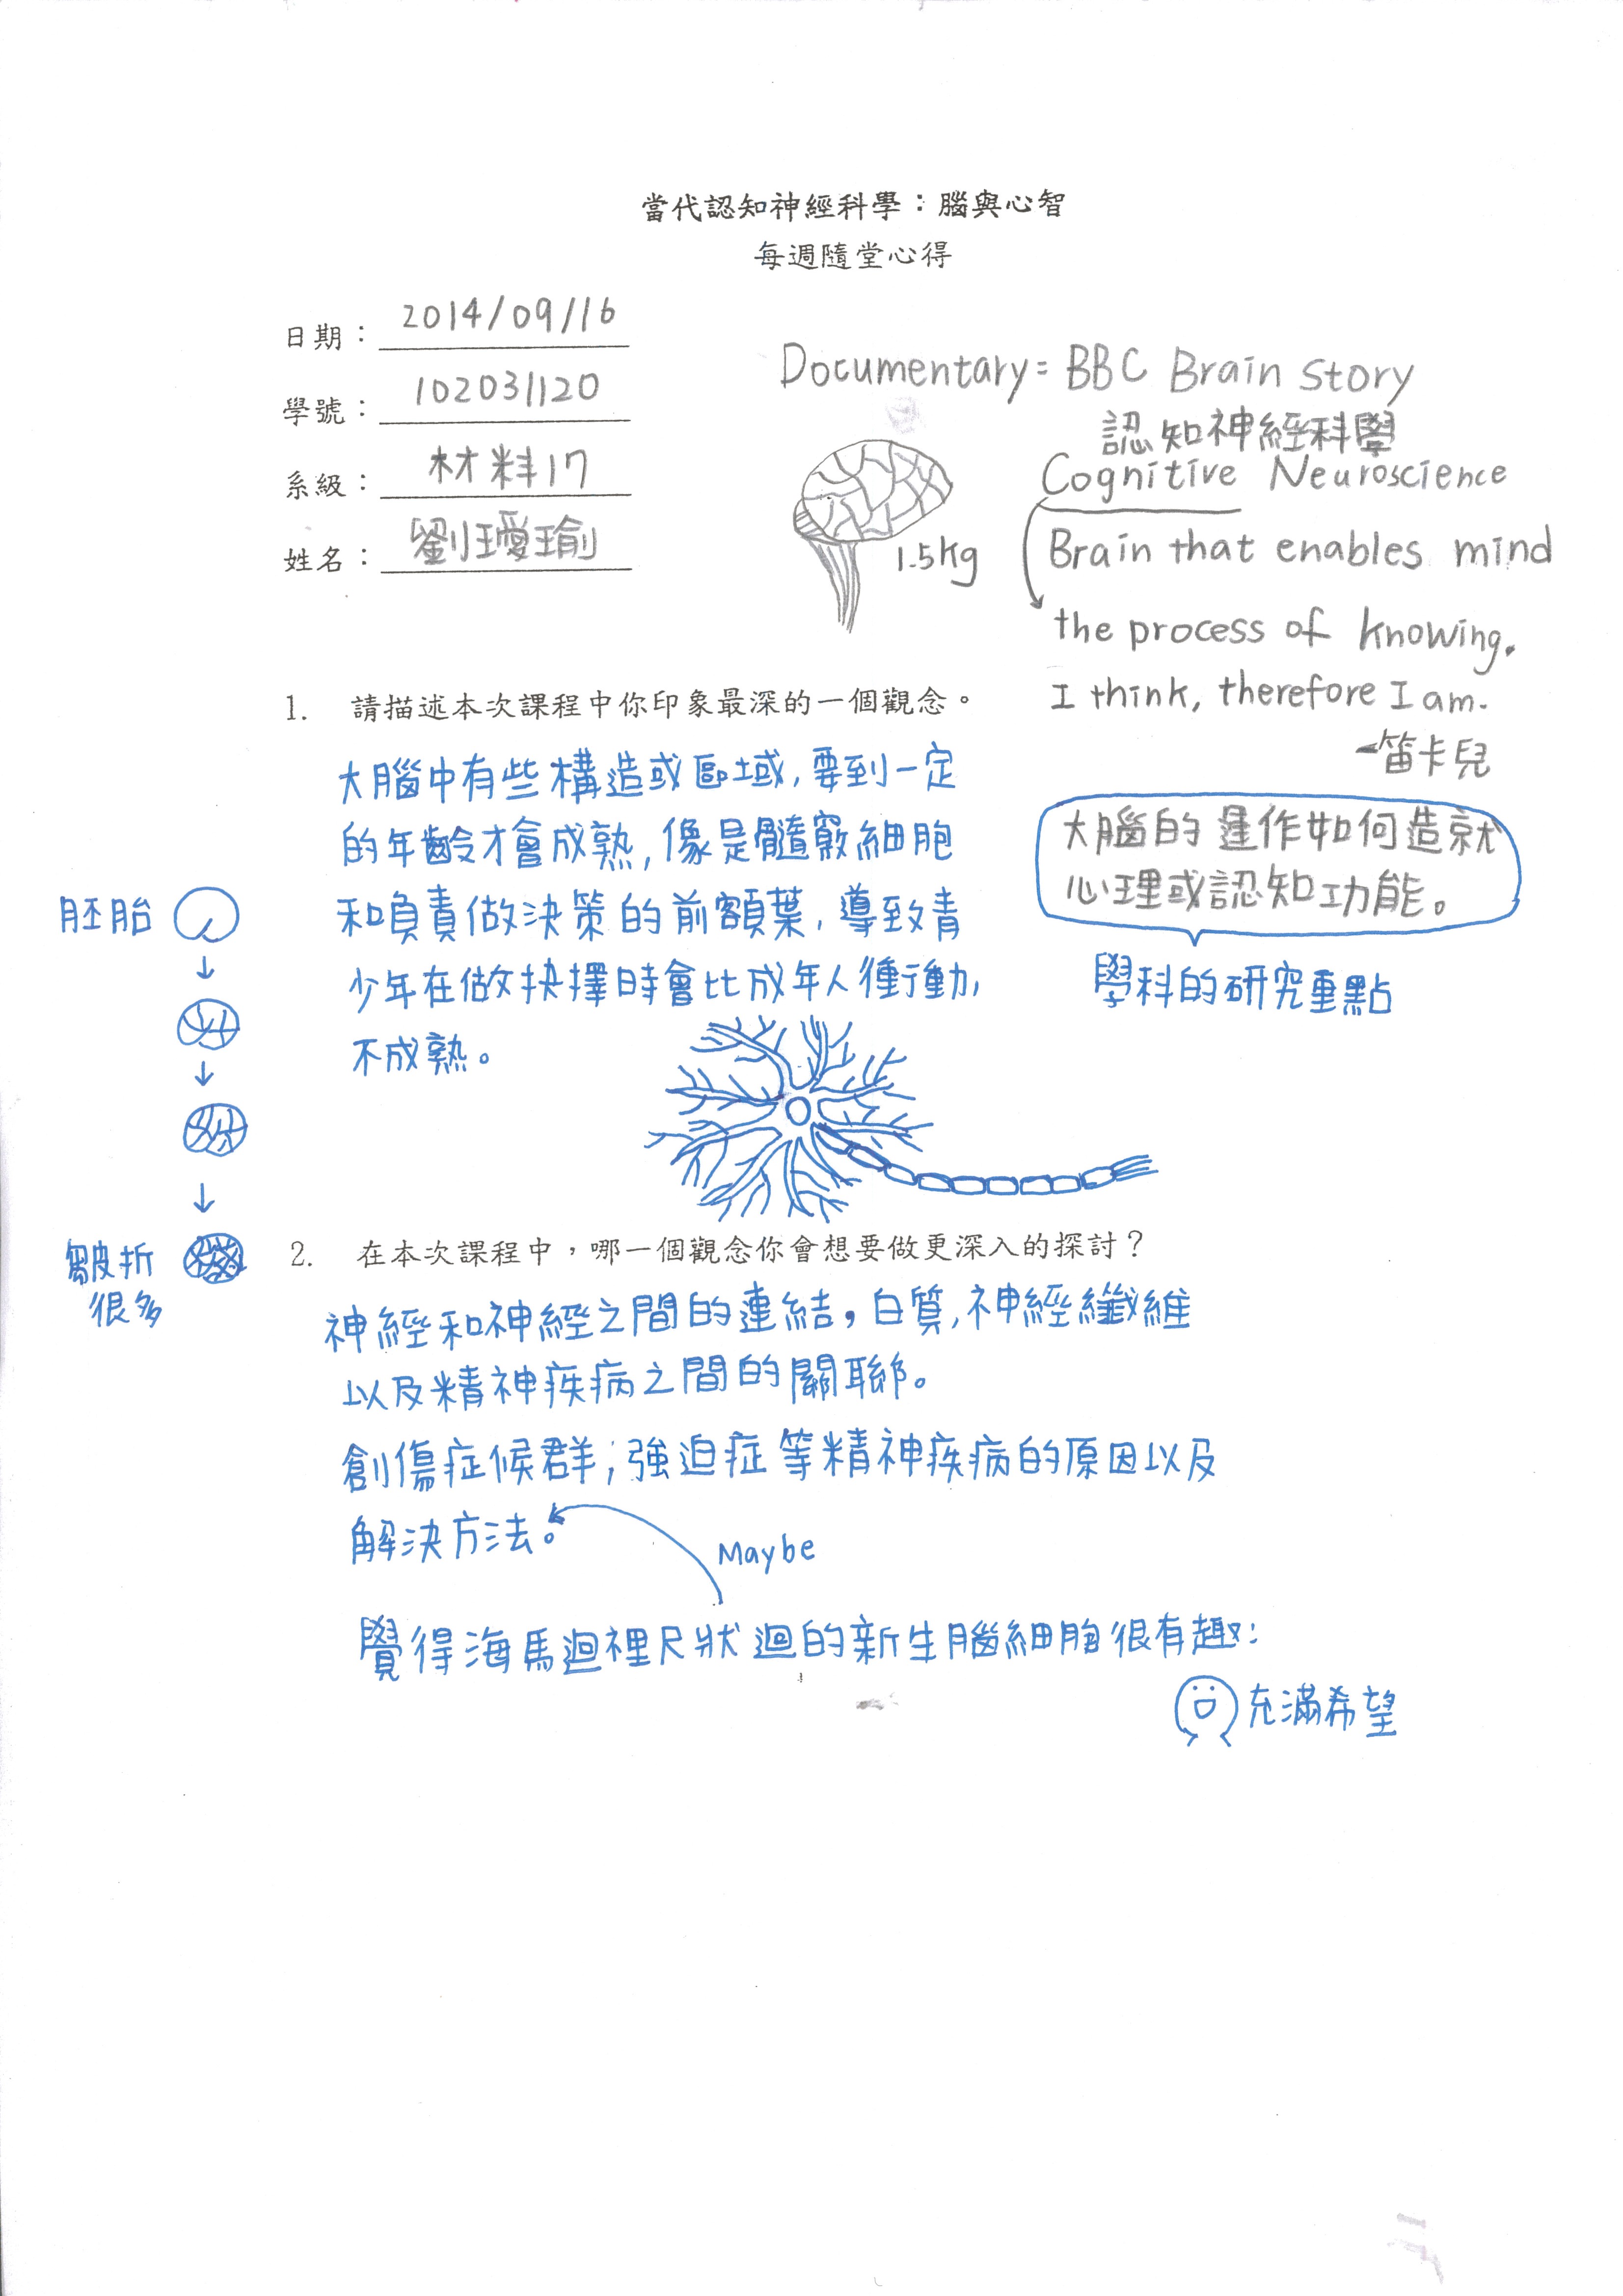 當代認知神經科學：腦與心智
每週隨堂心得
日期： 2014/09/16
學號： 102031120
系級： 材料17
姓名： 劉璦瑜
Documentary = BBC Brain Story
認知神經科學
Cognitive Neuroscience
1.5kg
Brain that enables mind
the process of knowing.
I think, therefore I am.
－笛卡兒
大腦的運作如何造就
心理或認知功能。
學科的研究重點
1. 請描述本次課程中你印象最深的一個觀念。
大腦中有些構造或區域，要到一定
的年齡才會成熟，像是髓鞘細胞
和負責做決策的前額葉，導致青
少年在做抉擇時會比成年人衝動，
不成熟。
胚胎
皺折
很多
2. 在本次課程中，哪一個觀念你會想要做更深入的探討？
神經和神經之間的連結，白質，神經纖維
以及精神疾病之間的關聯。
創傷症候群；強迫症等精神疾病的原因以及
解決方法。
Maybe
覺得海馬迴裡尺狀迴的新生腦細胞很有趣：
充滿希望